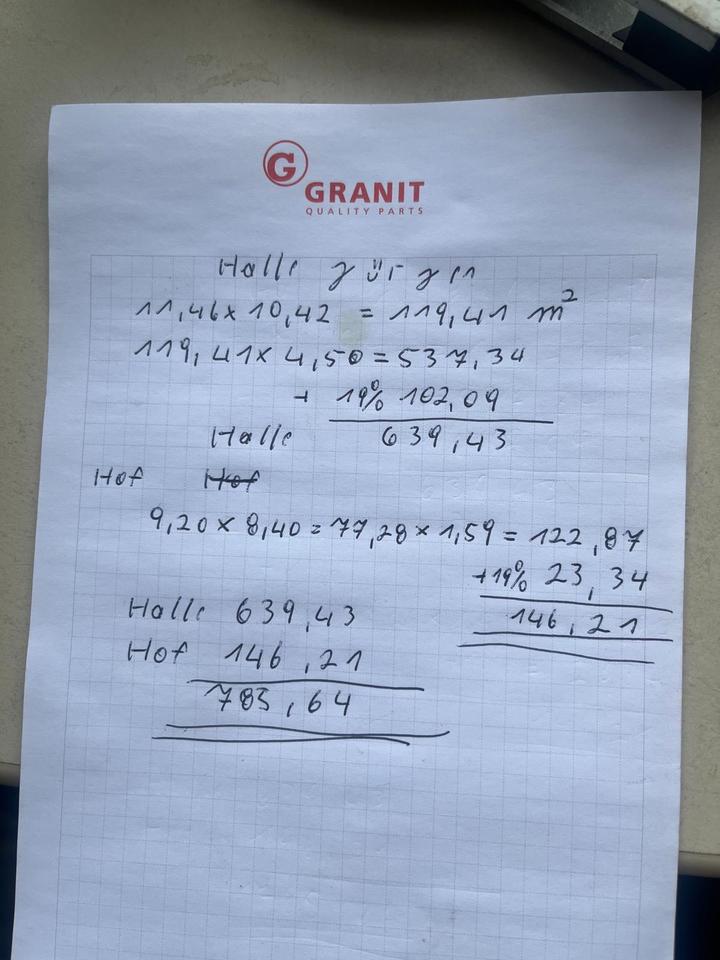 G
GRANIT
QUALITY PARTS
Halle Jürgen
11,46 x 10,42 = 119,41 m²
119,41 x 4,50 = 537,34
+ 19% 102,09
Halle 639,43
Hof Hof
9,20 x 8,40 = 77,28 x 1,59 = 122,87
+19% 23,34
146,21
Halle 639,43
Hof 146,21
785,64